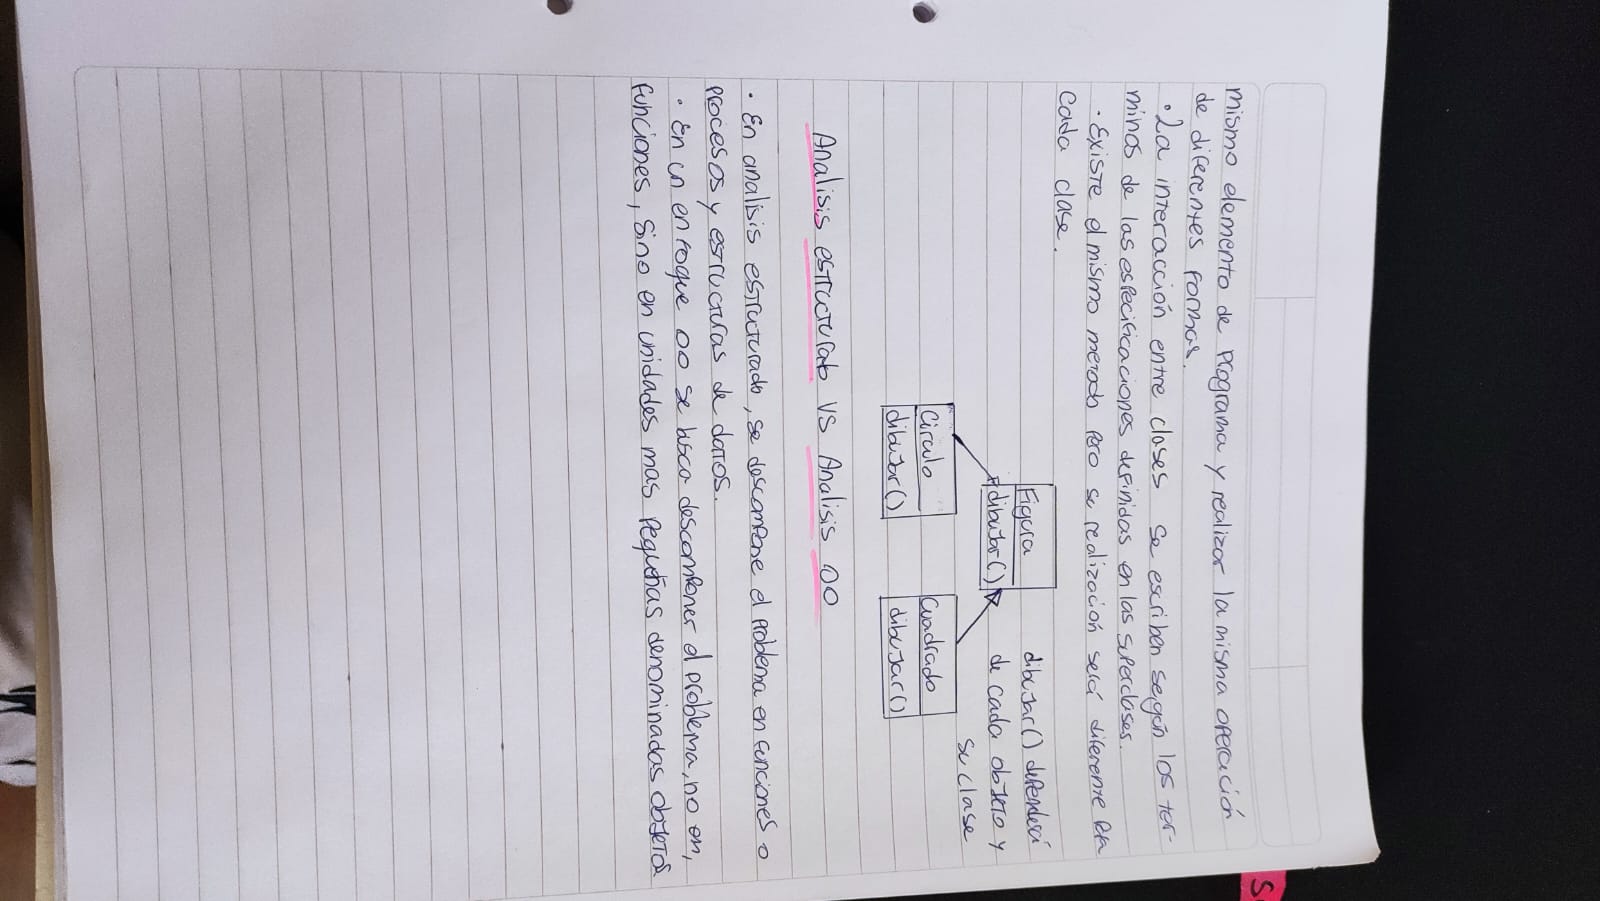 mismo elemento de programa y realizar la misma operación
de diferentes formas.
• La interacción entre clases se escriben según los ter-
minos de las especificaciones definidas en las superclases.
• Existe el mismo metodo pero su realización será diferente en
cada clase.
Figura
dibujar()
dibujar() dependerá
de cada objeto y
su clase
Circulo
dibujar()
Cuadrado
dibujar()
Analisis estructurado VS Analisis OO
• En analisis estructurado, se descompone el problema en funciones o
procesos y estructuras de datos.
• En un enfoque OO se busca descomponer el problema, no en,
funciones, sino en unidades mas pequeñas denominadas objetos
S